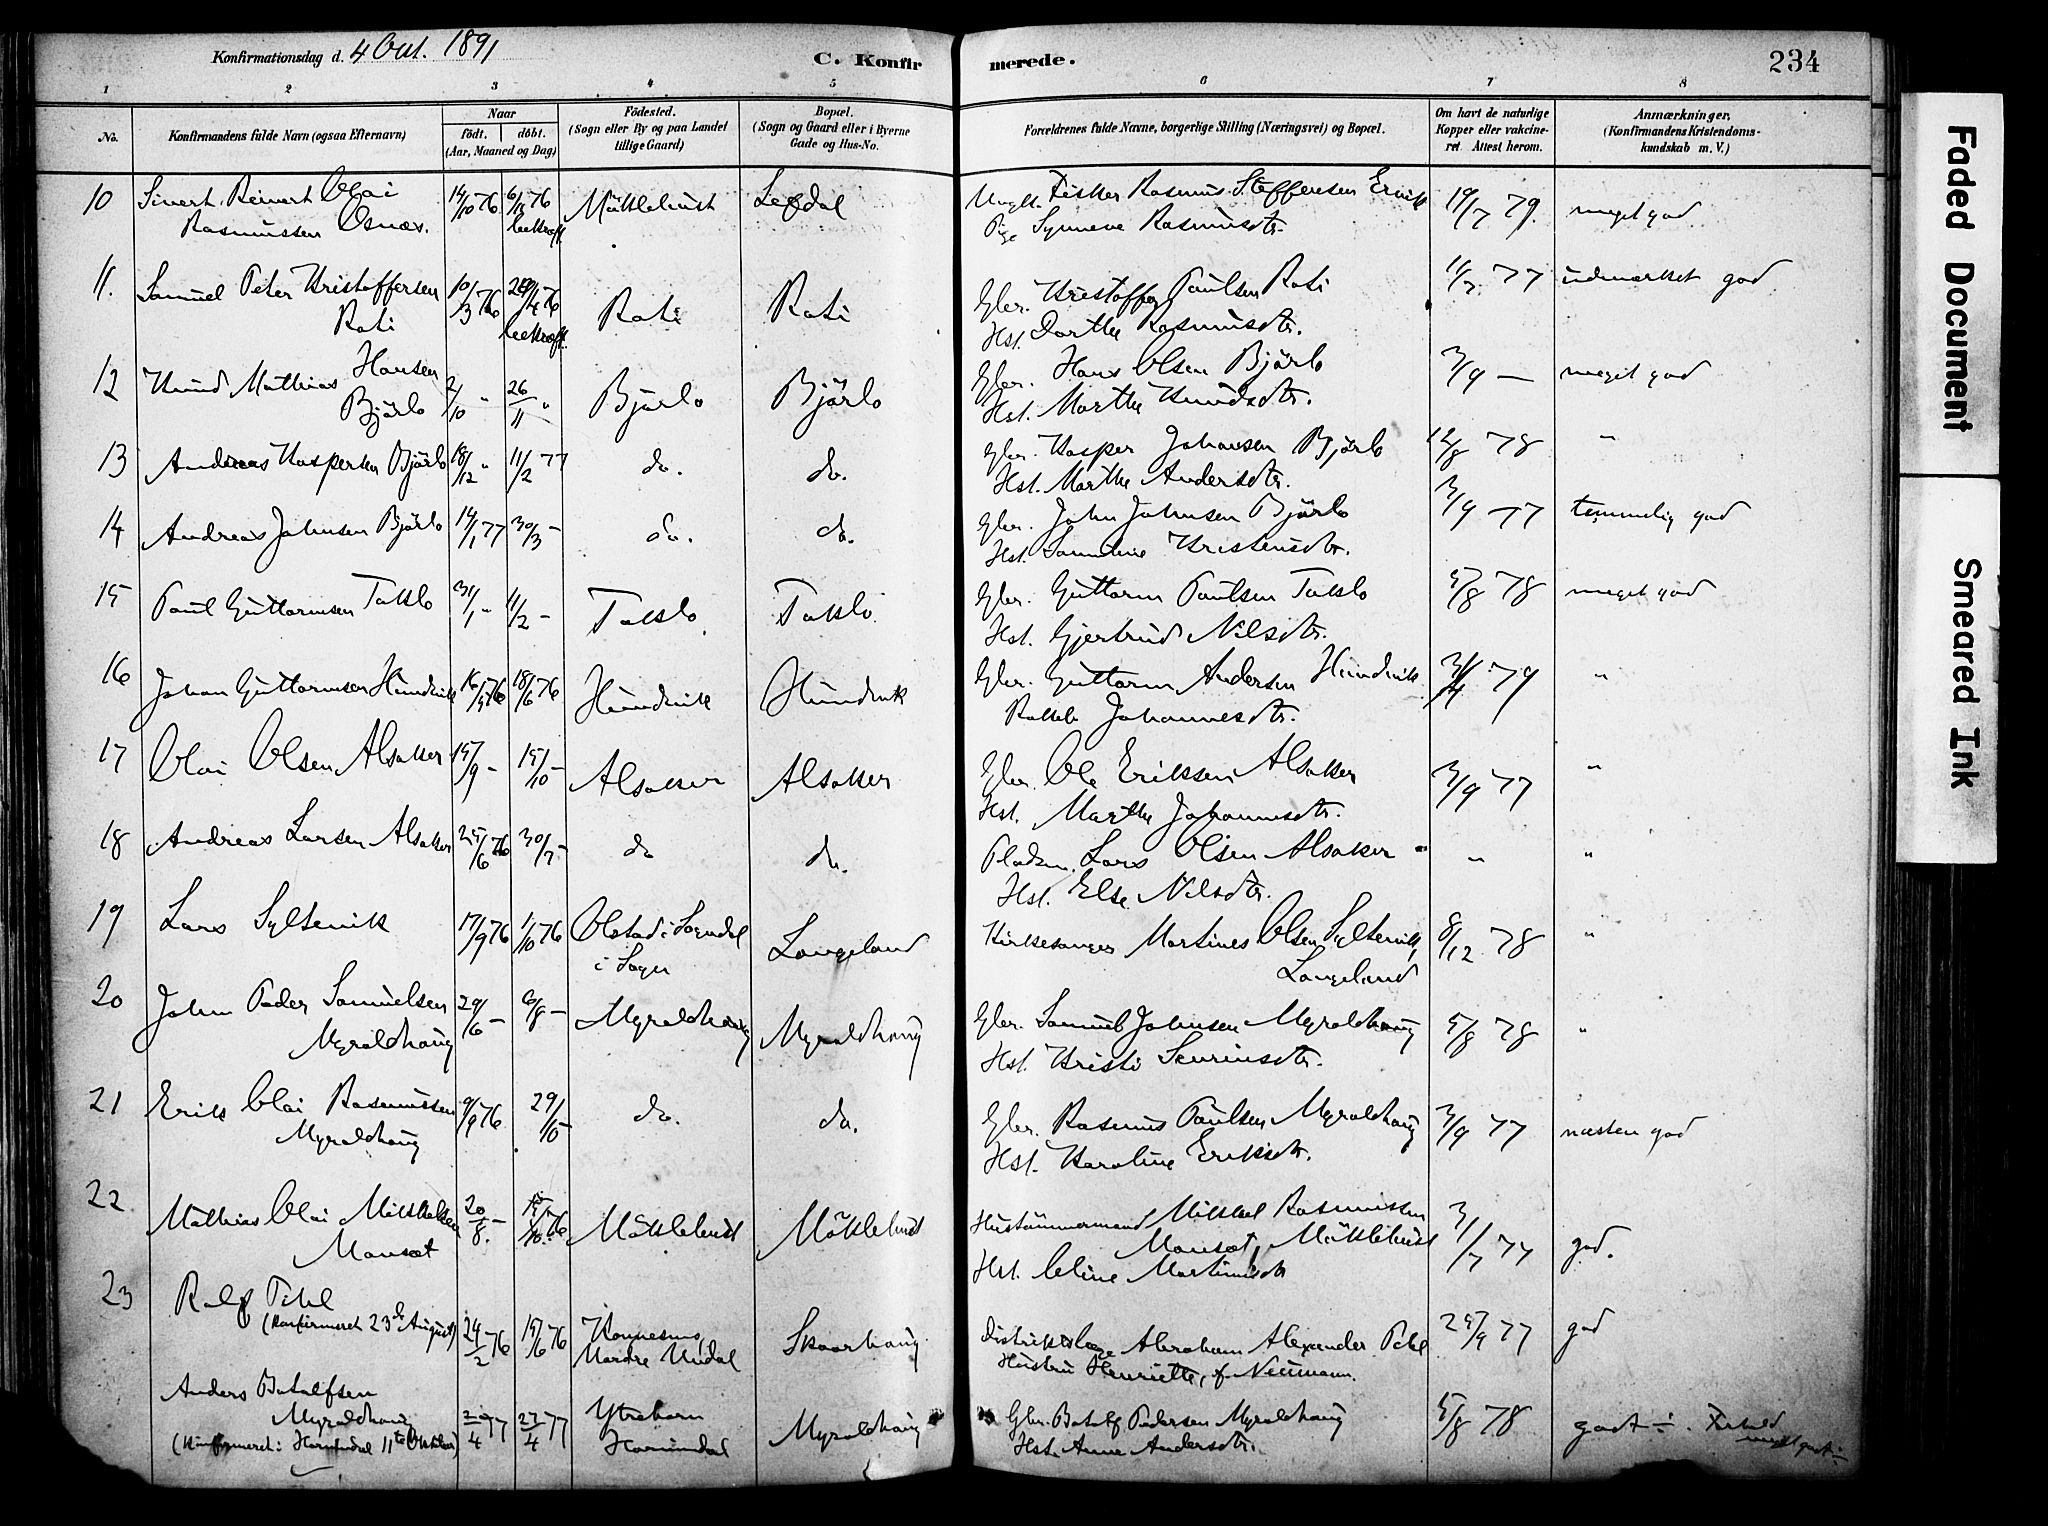 Konfirmationsdag d. 4 Oct. 1891
C. Konfirmerede.
234
1 2 3 4 5 6 7 8
No.
Konfirmandens fulde Navn (ogsaa Efternavn)
Naar
födt. döbt.
(Aar, Maaned og Dag)
Födested.
(Sogn eller By og paa Landet
tillige Gaard)
Bopæl.
(Sogn og Gaard eller i Byerne
Gade og Hus-No.
Forældrenes fulde Navne, borgerlige Stilling (Næringsvei) og Bopæl.
Om havt de naturlige
Kopper eller vakcine-
ret. Attest herom.
Anmærkninger,
(Konfirmandens Kristendoms-
kundskab m. V.)
10 Sivert Reinert Olai 14/10 76 Möklebust Lefdal Ungk. Fisker Rasmus Steffensen Ervik 19/7 79. meget god
Rasmussen Osnæs. Pige Synneve Rasmusdtr.
11. Samuel Peter Kristoffersen 10/3 76 Roti Roti Gbr. Kristoffer Paulsen Roti 77 udmærket god
Roti Hst. Dorthe Rasmusdtr.
12 Knud Mathias Hansen 2/10 " 26/11 " Bjørlo Bjørlo Gbr. Hans Olsen Bjørlo 3/9 — meget god
Bjørlo Hst. Marthe Knudsdtr.
13 Andreas Kaspersen Bjørlo 18/12 " 11/2 77 do. do. Gbr. Kasper Johansen Bjørlo 12/8 78 "
Hst. Marthe Andersdtr.
14 Andreas Johnsen Bjørlo 14/1 77 30/3 – do. do. Gbr. John Johnsen Bjørlo 3/9 77 temmelig god
Hst. Kristensdtr.
15 Paul Guttormsen Taklo 31/1 " 11/2 – Taklo Taklo Gbr. Guttorm Paulsen Taklo 5/8 78 meget god
Hst. Gjertrud Nilsdtr.
16 Johan Guttormsen Hundvik 76 18/6 76 Hundvik Hundvik Gbr. Guttorm Andersen Hundvik 79 "
Johannesdtr.
17 Olai Olsen Alsaker 15/9 – 15/10 – Alsaker Alsaker Gbr. Ole Eriksen Alsaker 3/9 77 "
Hst. Marthe Johannesdtr.
18 Andreas Larsen Alsaker 25/6 76 30/7 – do do. Pladsm. Lars Olsen Alsaker " "
Hst. Else Nilsdtr.
19 Lars Syltevik 17/9 76 1/10 76 Olstad i Sogndal Langeland Kirkesanger Martines Olsen Syltevik, 8/12 78 "
i Sogn Langeland
20 John Peder Samuelsen 29/6 – 6/8 – Myroldhaug Myroldhaug Gbr. Samuel Johnsen Myroldhaug 5/8 78 "
Myroldhaug Hst. Kristi Sevrinsdtr.
21 Erik Olai Rasmussen 9/9 76 29/10 do. do. Gbr. Rasmus Paulsen Myroldhaug 3/9 77 næsten god
Myroldhaug Hst. Karoline Eriksdtr.
22 Mathias Olai Mikkelsen 20/8 – 15/10 76 Möklebust Möklebust Hustömmermand Mikkel Rasmussen 3/7 77 god.
Monsæt Monsæt, Möklebust
Hst. Oline Martinusdtr
23 Rolf Pihl
(Konfirmeret 23de August) 24/2 76 15/6 76 Konnesmo, Skaarhaug Distriktslæge Abraham Alexander Pihl 25/9 77 god
Nordre Undal Hustru Henriette, f. Neumann.
Anders Botolfsen
Myroldhaug 2/4 77 27/4 77 Ytrehorn Myroldhaug Gbr. Botolf Pedersen Myroldhaug 5/8 78 godt ÷. Forhold
(Konfirmeret i Hornindal 11te Oktober) Hornindal Hst. Anne Andersdtr. meget godt ÷
Faded Document
Smeared Ink